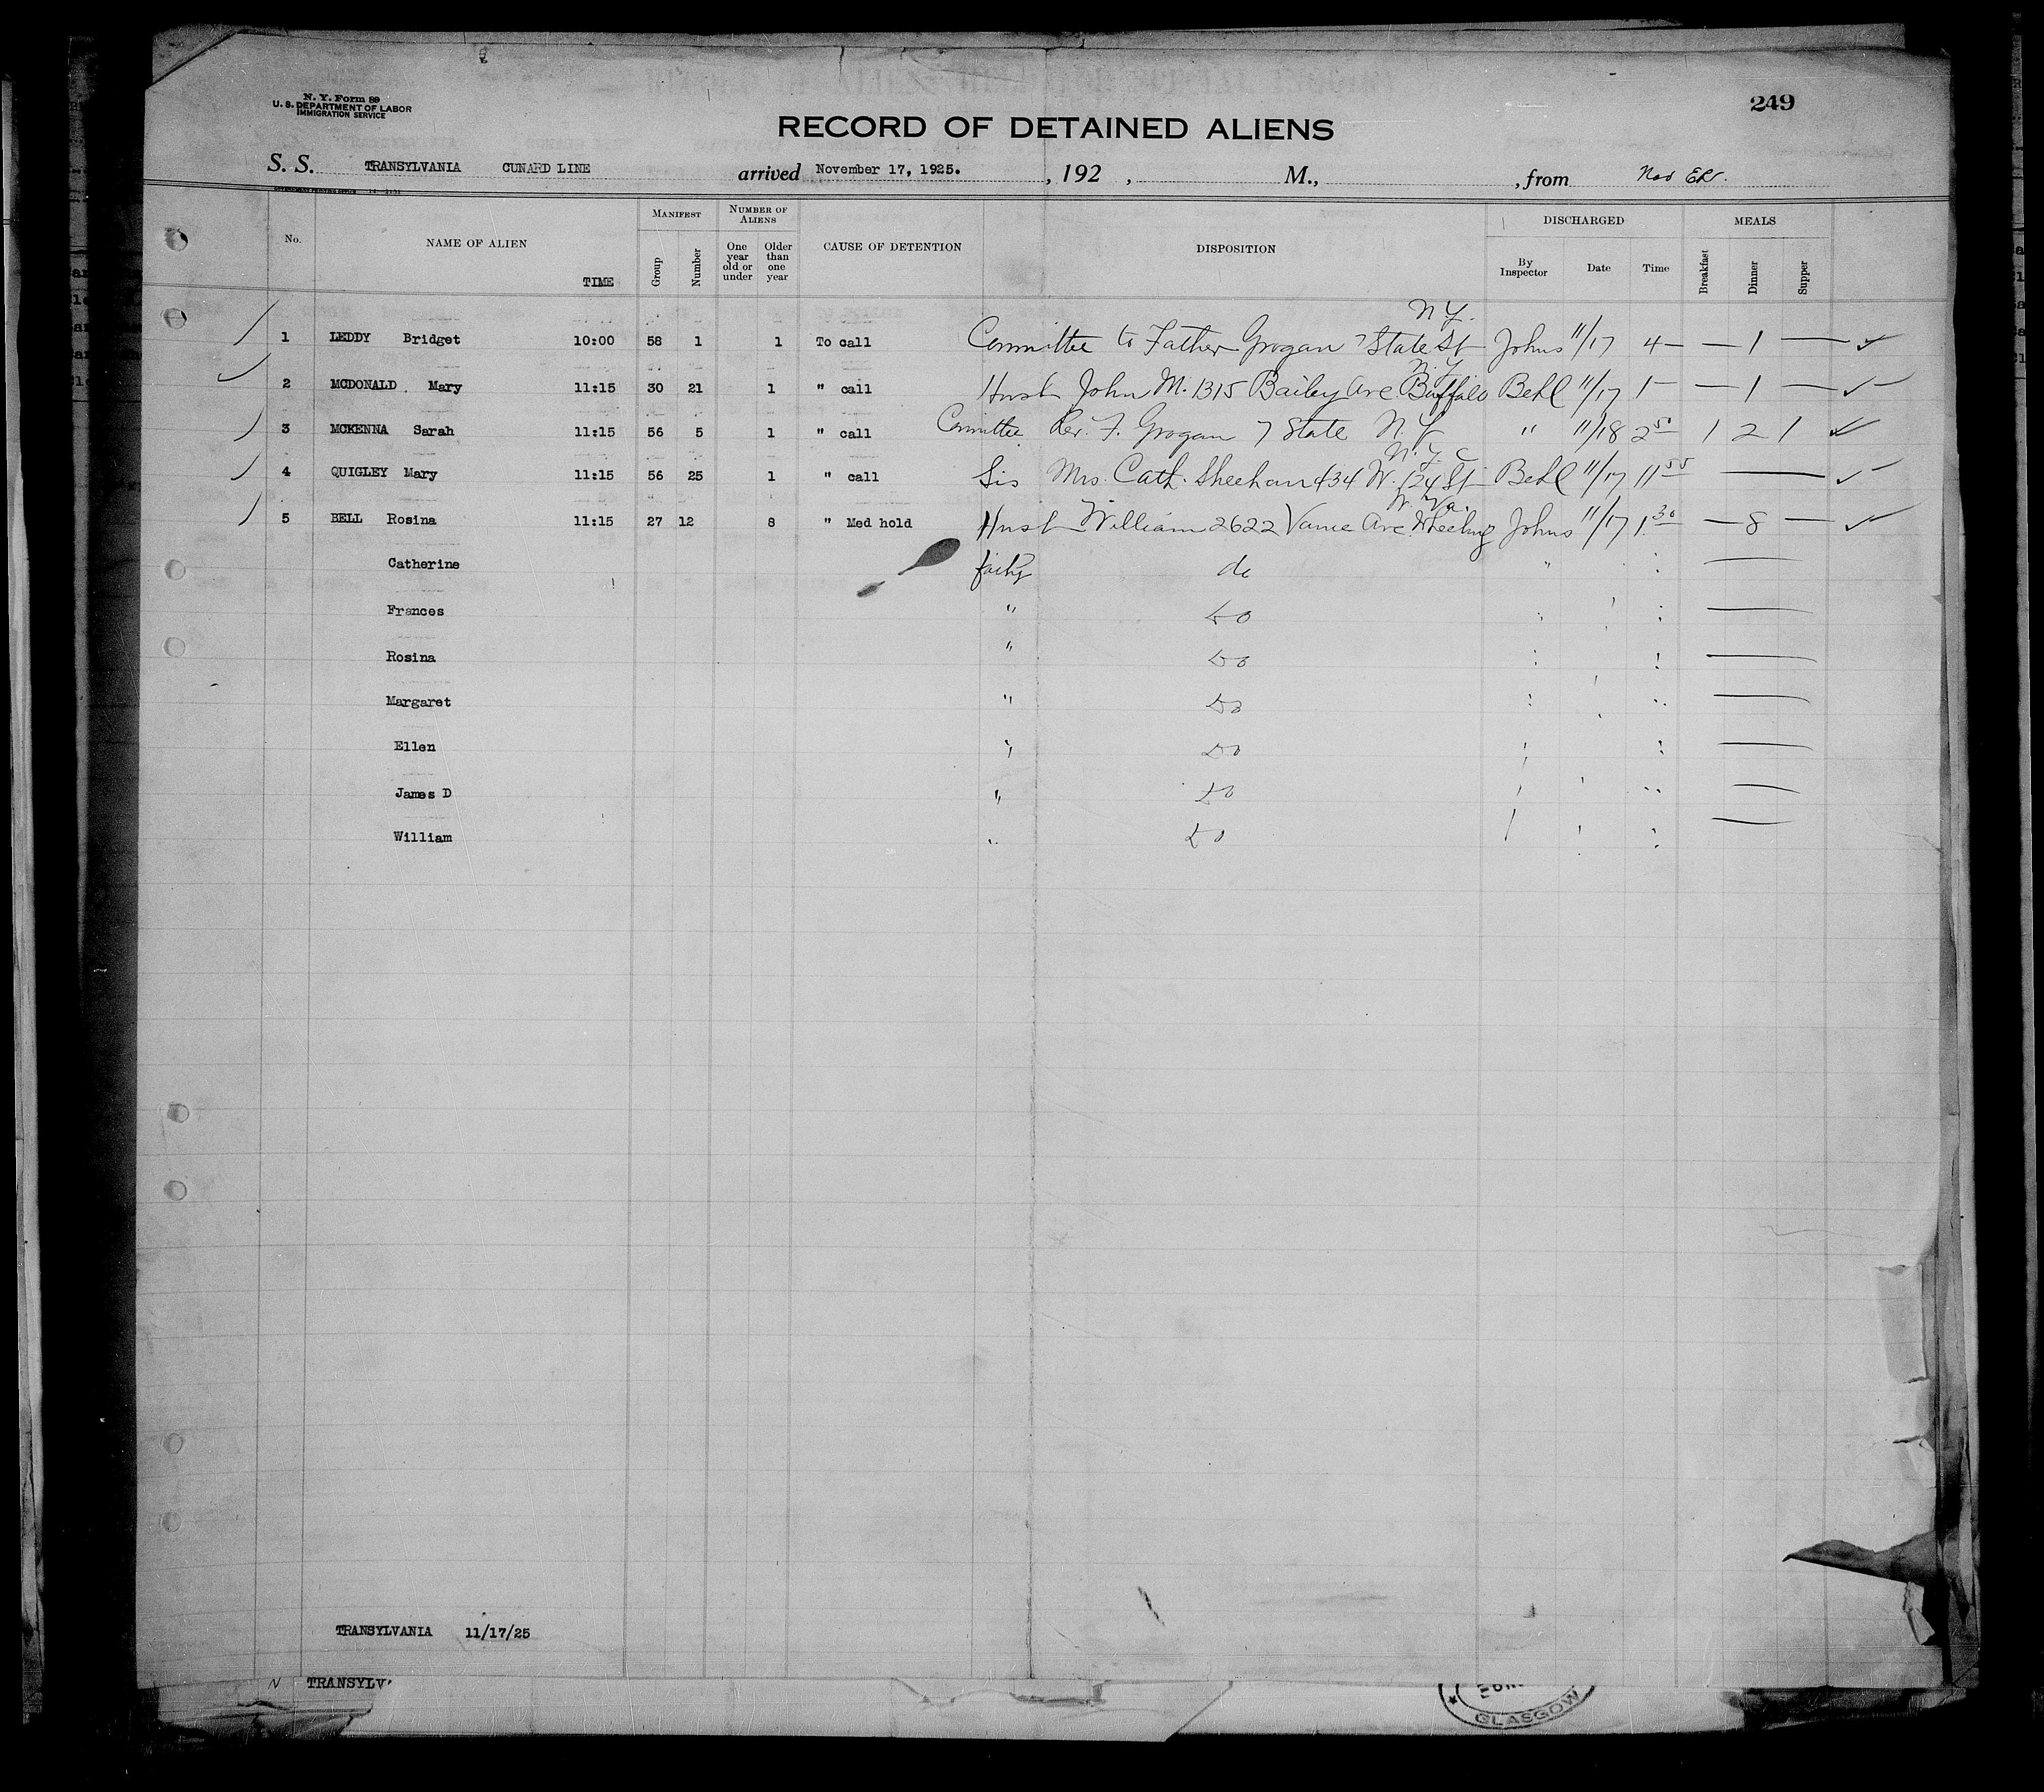 249
N. Y. Form 89
U. S. DEPARTMENT OF LABOR
IMMIGRATION SERVICE
RECORD OF DETAINED ALIENS
S. S. TRANSYLVANIA CUNARD LINE arrived November 17, 1925. , 192 , M., , from
No. NAME OF ALIEN TIME MANIFEST Group Number NUMBER OF ALIENS One year old or under Older than one year CAUSE OF DETENTION DISPOSITION DISCHARGED By Inspector Date Time MEALS Breakfast Dinner Supper
N.Y.
1 LEDDY Bridget 10:00 58 1 1 To call Committee to Father Grogan 7 State St Johns 11/17 4— — 1 —
N.Y.
2 MCDONALD Mary 11:15 30 21 1 " call Husb John M. 1315 Bailey Ave Buffalo Behl 11/17 1— — 1 —
3 MCKENNA Sarah 11:15 56 5 1 " call Committee Rev. F. Grogan 7 State N.Y " 11/18 2 50 1 2 1
N.Y.C
4 QUIGLEY Mary 11:15 56 25 1 " call Sis Mrs. Cath. Sheehan 434 W. 124 St Behl 11/17 11 55 —
W. Va.
5 BELL Rosina 11:15 27 12 8 " Med hold Husb William 2622 Vance Ave. Wheeling Johns 11/17 1 30 — 8 —
Catherine do " —
Frances " do —
Rosina " do —
Margaret " do —
Ellen " do —
James D " do —
William " do —
TRANSYLVANIA 11/17/25
N TRANSYLV
GLASGOW